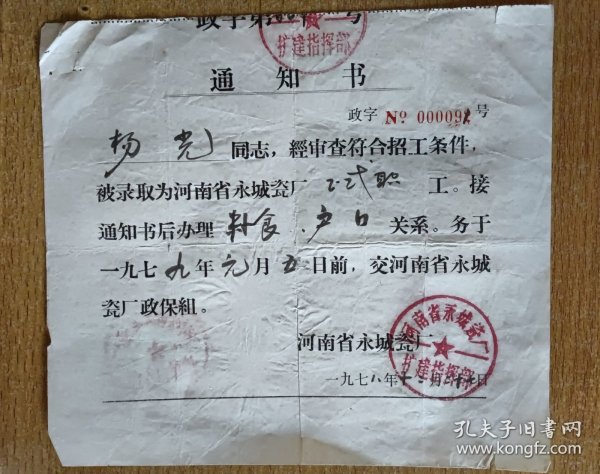 政字第 号
扩建指挥部
通知书
政字 № 000092号
杨光 同志，經审查符合招工条件，
被录取为河南省永城瓷厂 正式职 工。接
通知书后办理 粮食、户口 关系。务于
一九七九年元月五日前，交河南省永城
瓷厂政保組。
河南省永城瓷厂
河南省永城瓷厂
扩建指挥部
一九七八年十 月 日
孔夫子旧书网
www.kongfz.com